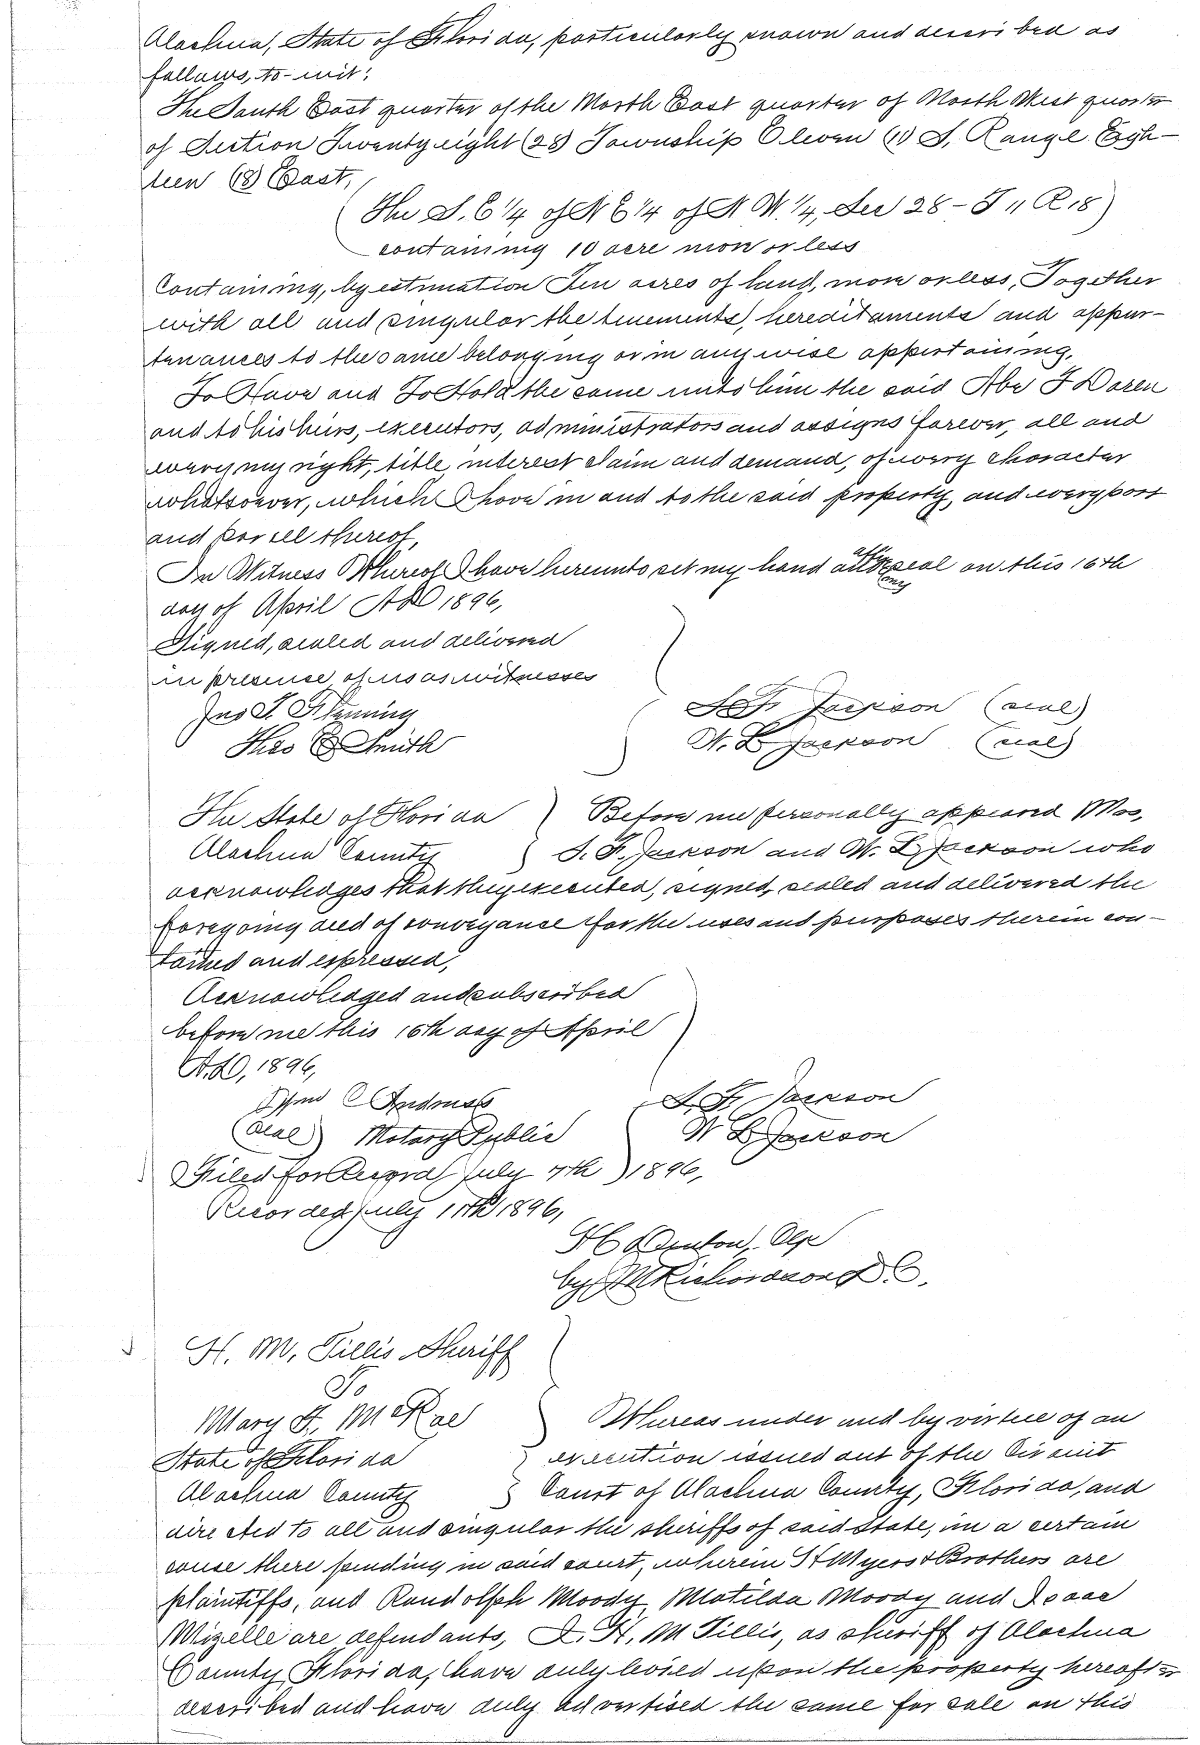 Alachua, State of Florida, particularly known and described as
follows, to-wit:
The South East quarter of the North East quarter of North West quarter
of Section Twenty eight (28) Township Eleven (11) S, Range Eigh-
teen (18) East,
(The S. E 1/4 of N E 1/4 of N W. 1/4, Sec 28 - T 11 R 18)
containing 10 acre more or less
Containing, by estimation Ten acres of land, more or less, Together
with all and singular the tenements, hereditaments and appur-
tenances to the same belonging or in anywise appertaining,
To Have and To Hold the same unto him the said Abe J
and to his heirs, executors, administrators and assigns forever, all and
every my right, title, interest claim and demand, of every character
whatsoever, which I have in and to the said property, and every part
and parcell thereof,
In Witness Whereof I have hereunto set my hand seal on this 16th
day of April A D 1896,
Signed, sealed and delivered
in presence of us as witnesses
Jno
Smith
S. F. Jackson (seal)
W. L Jackson (seal)
The State of Florida } Before me personally appeared Mrs,
Alachua County } S. F. Jackson and W. L Jackson who
acknowledges that they executed, signed, sealed and delivered the
foregoing deed of conveyance for the uses and purposes therein con-
tained and expressed,
Acknowledged and subscribed
before me this 16th day of April
A.D, 1896,
C Andruss S. F. Jackson
(seal) Notary Public W L Jackson
Filed for Record July 7th 1896,
Recorded July 11th 1896,
H C Denton, Clk
by M Richardson D. C.
H. M, Tillis Sheriff
To
Mary F. McRae Whereas under and by virtue of an
State of Florida } execution issued out of the Circuit
Alachua County } Court of Alachua County, Florida, and
directed to all and singular the sheriffs of said State, in a certain
cause there pending in said court, wherein Myers & Brothers are
plaintiffs, and Randolph Moody, Matilda Moody and Isaac
Mizelle are defendants, I. H. M Tillis, as sheriff of Alachua
County, Florida, have duly levied upon the property hereafter
described and have duly advertised the same for sale on this